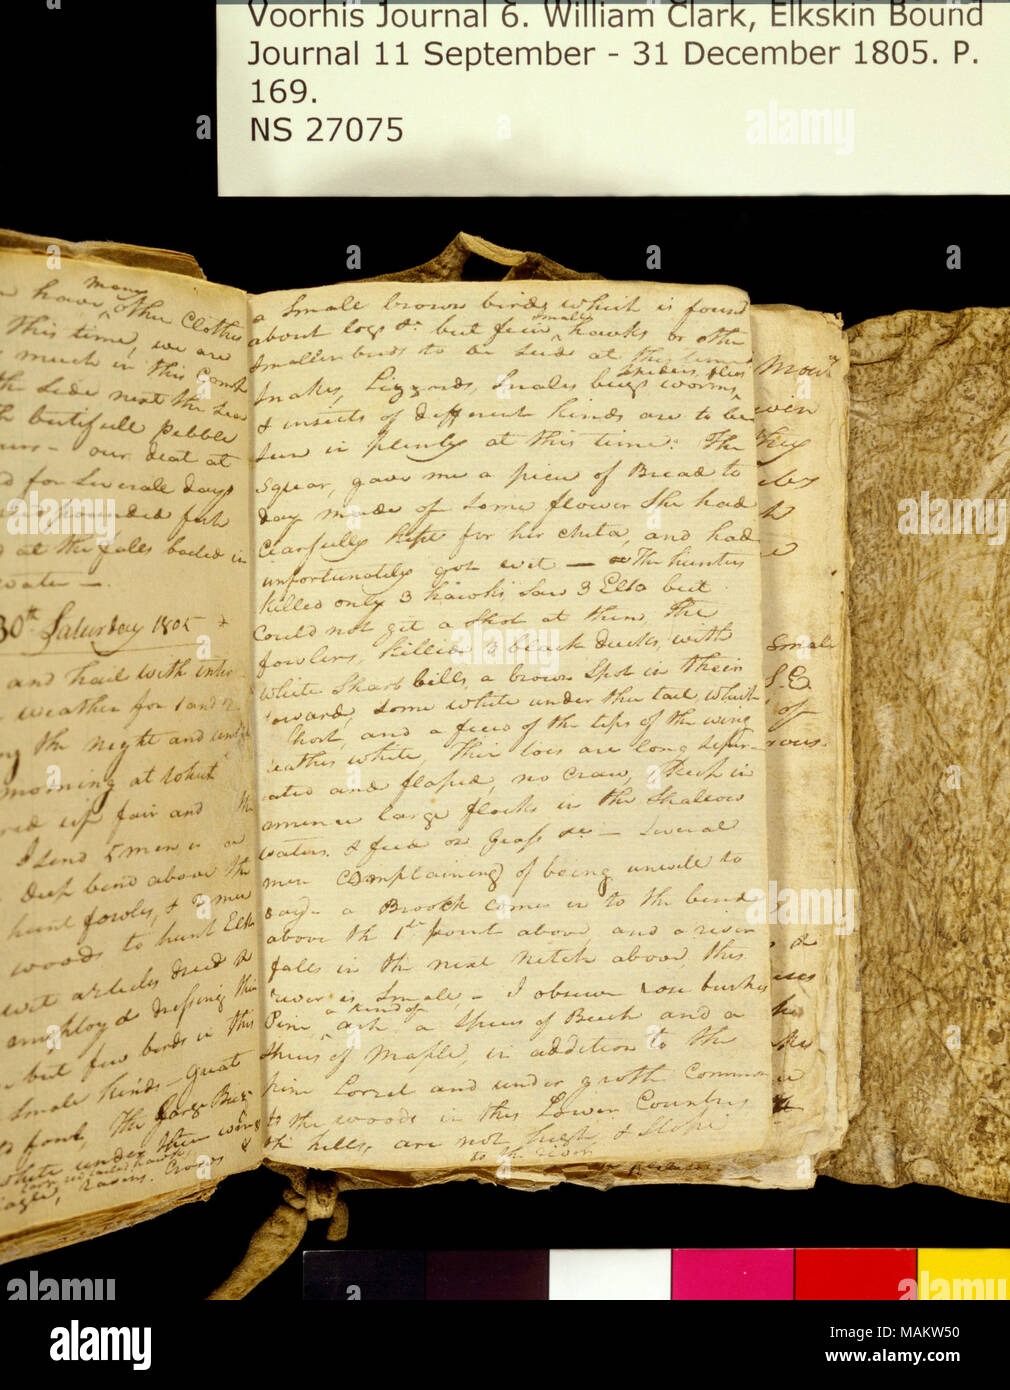 Voorhis Journal 6. William Clark, Elkskin Bound
Journal 11 September - 31 December 1805. P.
169.
NS 27075
have many other Clothes
This time, we are
much in this Comck
the Side next the Sea
butifull pebble
our deat at
for Severale days
pounded fish
at the falls boiled in
water —
30th Saturday 1805
and hail with inter
weather for 1 and 2
the night and
morning at
up fair and the
I Send 5 men in a
Deep bend above the
hunt fowles, & 2 men
woods to hunt Elk
wet articles dried &
employd dressing thier
but few birds in this
Small kinds – great
fowl, the Large Buz
white under thier wing
Ravens Crows &
a Small brown bird which is found
about logs &c. but fiew small hawks or other
Smaller birds to be Seen at this time
Snakes, Lizzards, Snales bugs worms, Spiders, flies
& insects of different kinds are to be
Seen in plenty at this time. The
Squar, gave me a piece of Bread to
day made of Some flower She had
Cearfully kept for her child, and had
unfortunately got wet — The hunters
killed only 3 hawks Saw 3 Elk but
Could not git a Shot at them, The
fowlers, killed 3 black ducks, with
white Sharp bills, a brown Spot in their
foward, Some white under the tail which
Short, and a fiew of the tips of the wing
feathers white, Thier toes are long Seper-
ated and flaped, no Craw, Keep in
emence large flocks in the Shallow
waters & feed on Grass &c. — Several
men Complaining of being unwell to
day – a Broock comes in to the bend
above the 1st point above, and a river
falls in the next nitch above, this
river is Small, – I observe rose bushes
Pine, a kind of ash a Speces of Beech and a
Speces of Maple, in addition to the
pine Lorrel and under groth Common
to the woods in this Lower Country
the hills, are not high, & Slope
to the river
Small
S. E
of
alamy
Image ID: MAKW50
www.alamy.com